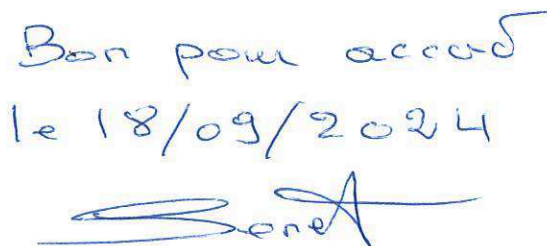 Bon pour accord
le 18/09/2024